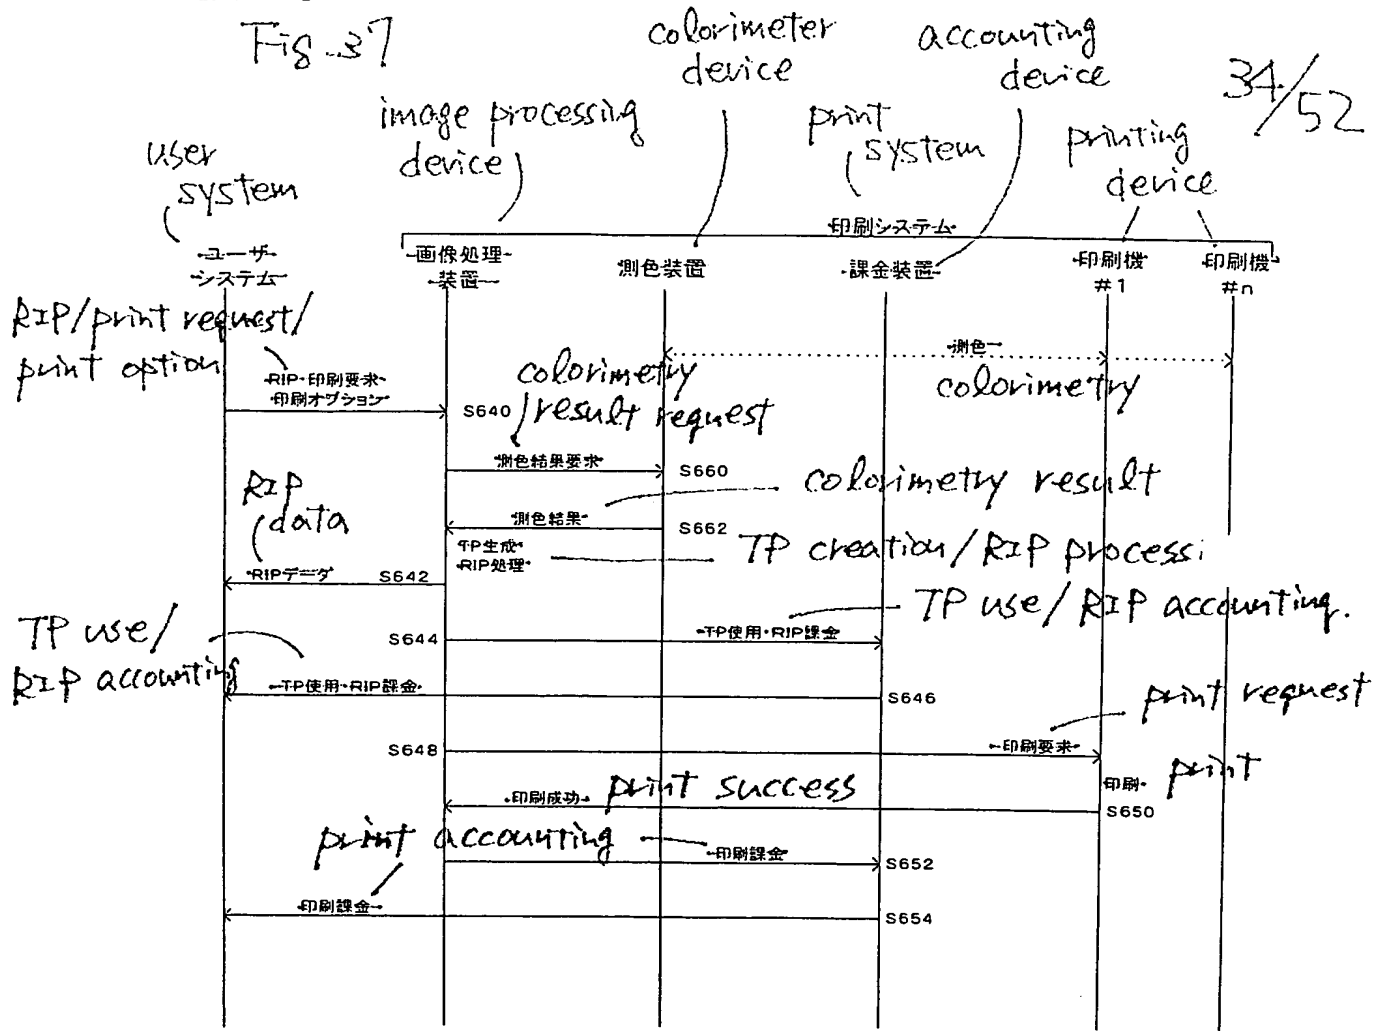 Fig. 37
colorimeter
device
accounting
device
34/52
image processing
device
print
system
printing
device
user
system
印刷システム
ユーザ
システム
画像処理
装置
測色装置
課金装置
印刷機
#1
印刷機
#n
RIP/print request/
print option
測色
colorimetry
RIP・印刷要求
印刷オプション
S640
colorimetry
result request
測色結果要求
S660
colorimetry result
RIP
data
測色結果
S662
TP生成・
RIP処理
TP creation/RIP processi
RIPデータ
S642
TP use/RIP accounting.
TP use/
RIP accounting
S644
TP使用・RIP課金
TP使用・RIP課金
S646
print request
S648
印刷要求
印刷
print
印刷成功
print success
S650
print accounting
印刷課金
S652
印刷課金
S654